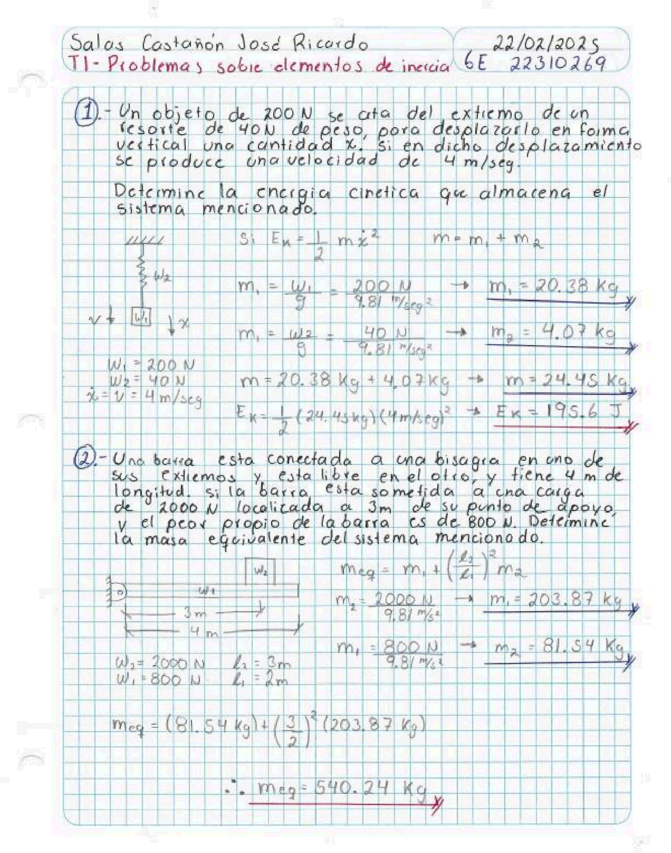 Salas Castañón José Ricardo 22/02/2025
T1-Problemas sobre elementos de inercia 6E 22310269
①.- Un objeto de 200 N se ata del extremo de un
resorte de 40N de peso, para desplazarlo en forma
vertical una cantidad x. si en dicho desplazamiento
se produce una velocidad de 4 m/seg.
Determine la energia cinetica que almacena el
sistema mencionado.
Si Eₖ = 1/2 mẋ² m = m₁ + m₂
w₂
v ↓ w₁ ↓ x
m₁ = w₁/g = 200 N / 9.81 m/seg² → m₁ = 20.38 kg
m₁ = w₂/g = 40 N / 9.81 m/seg² → m₂ = 4.07 kg
w₁ = 200 N
w₂ = 40 N
ẋ = v = 4 m/seg
m = 20.38 kg + 4.07 kg → m = 24.45 kg
Eₖ = 1/2 (24.45 kg)(4 m/seg)² → Eₖ = 195.6 J
②.- Una barra esta conectada a una bisagra en uno de
sus extremos y esta libre en el otro, y tiene 4 m de
longitud. si la barra esta sometida a una carga
de 2000 N localizada a 3m de su punto de apoyo,
y el peor propio de la barra es de 800 N. Determine
la masa equivalente del sistema mencionado.
w₂
w₁
3 m
4 m
meq = m₁ + (l₂/l₁)² m₂
m₂ = 2000 N / 9.81 m/s² → m₁ = 203.87 kg
m₁ = 800 N / 9.81 m/s² → m₂ = 81.54 kg
w₂ = 2000 N l₂ = 3m
w₁ = 800 N l₁ = 2m
meq = (81.54 kg) + (3/2)² (203.87 kg)
∴ meq = 540.24 Kg